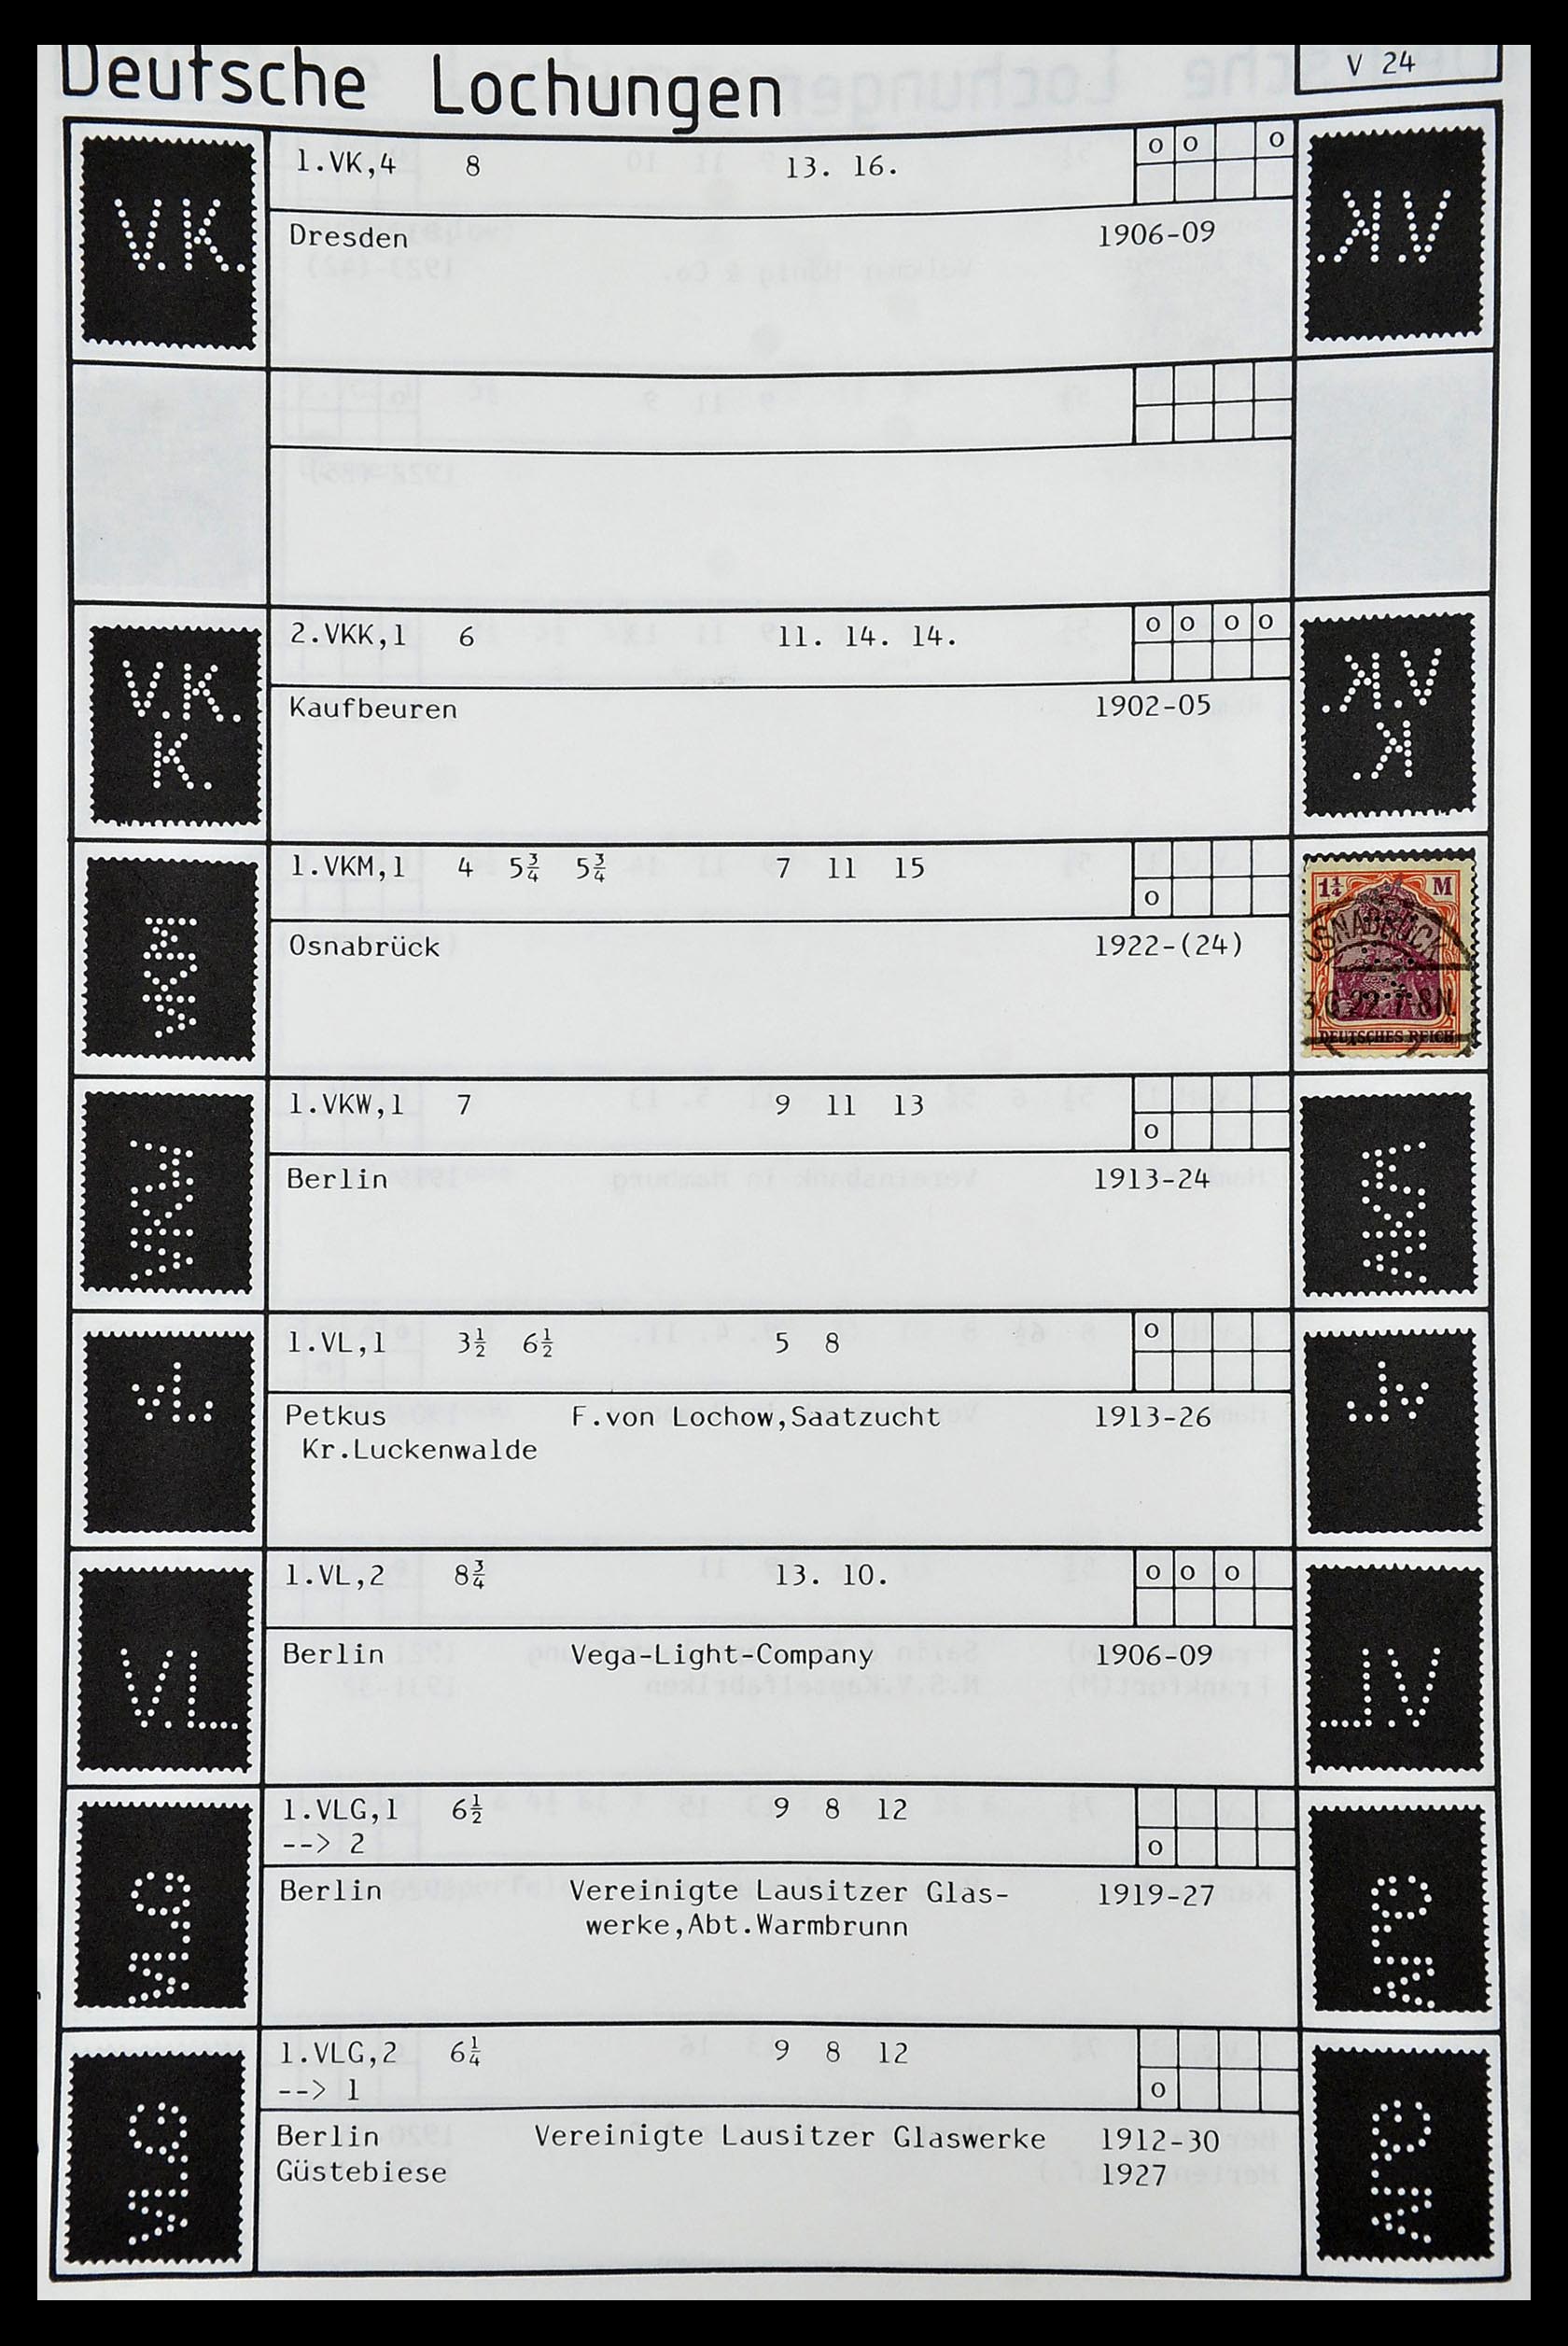 Deutsche Lochungen
V 24
V.K.
1.VK,4 8 13. 16.
o o o
Dresden 1906-09
V.K.
K.
2.VKK,1 6 11. 14. 14.
o o o o
Kaufbeuren 1902-05
VKM
1.VKM,1 4 5¾ 5¾ 7 11 15
o
Osnabrück 1922-(24)
1¼ M
OSNABRÜCK
22.7-8N.
DEUTSCHES REICH
VKW
1.VKW,1 7 9 11 13
o
Berlin 1913-24
VL
1.VL,1 3½ 6½ 5 8
o
Petkus F.von Lochow,Saatzucht 1913-26
Kr.Luckenwalde
V.L.
1.VL,2 8¾ 13. 10.
o o o
Berlin Vega-Light-Company 1906-09
VLG
1.VLG,1 6½ 9 8 12
--> 2
o
Berlin Vereinigte Lausitzer Glas- 1919-27
werke,Abt.Warmbrunn
VLG
1.VLG,2 6¼ 9 8 12
--> 1
o
Berlin Vereinigte Lausitzer Glaswerke 1912-30
Güstebiese 1927